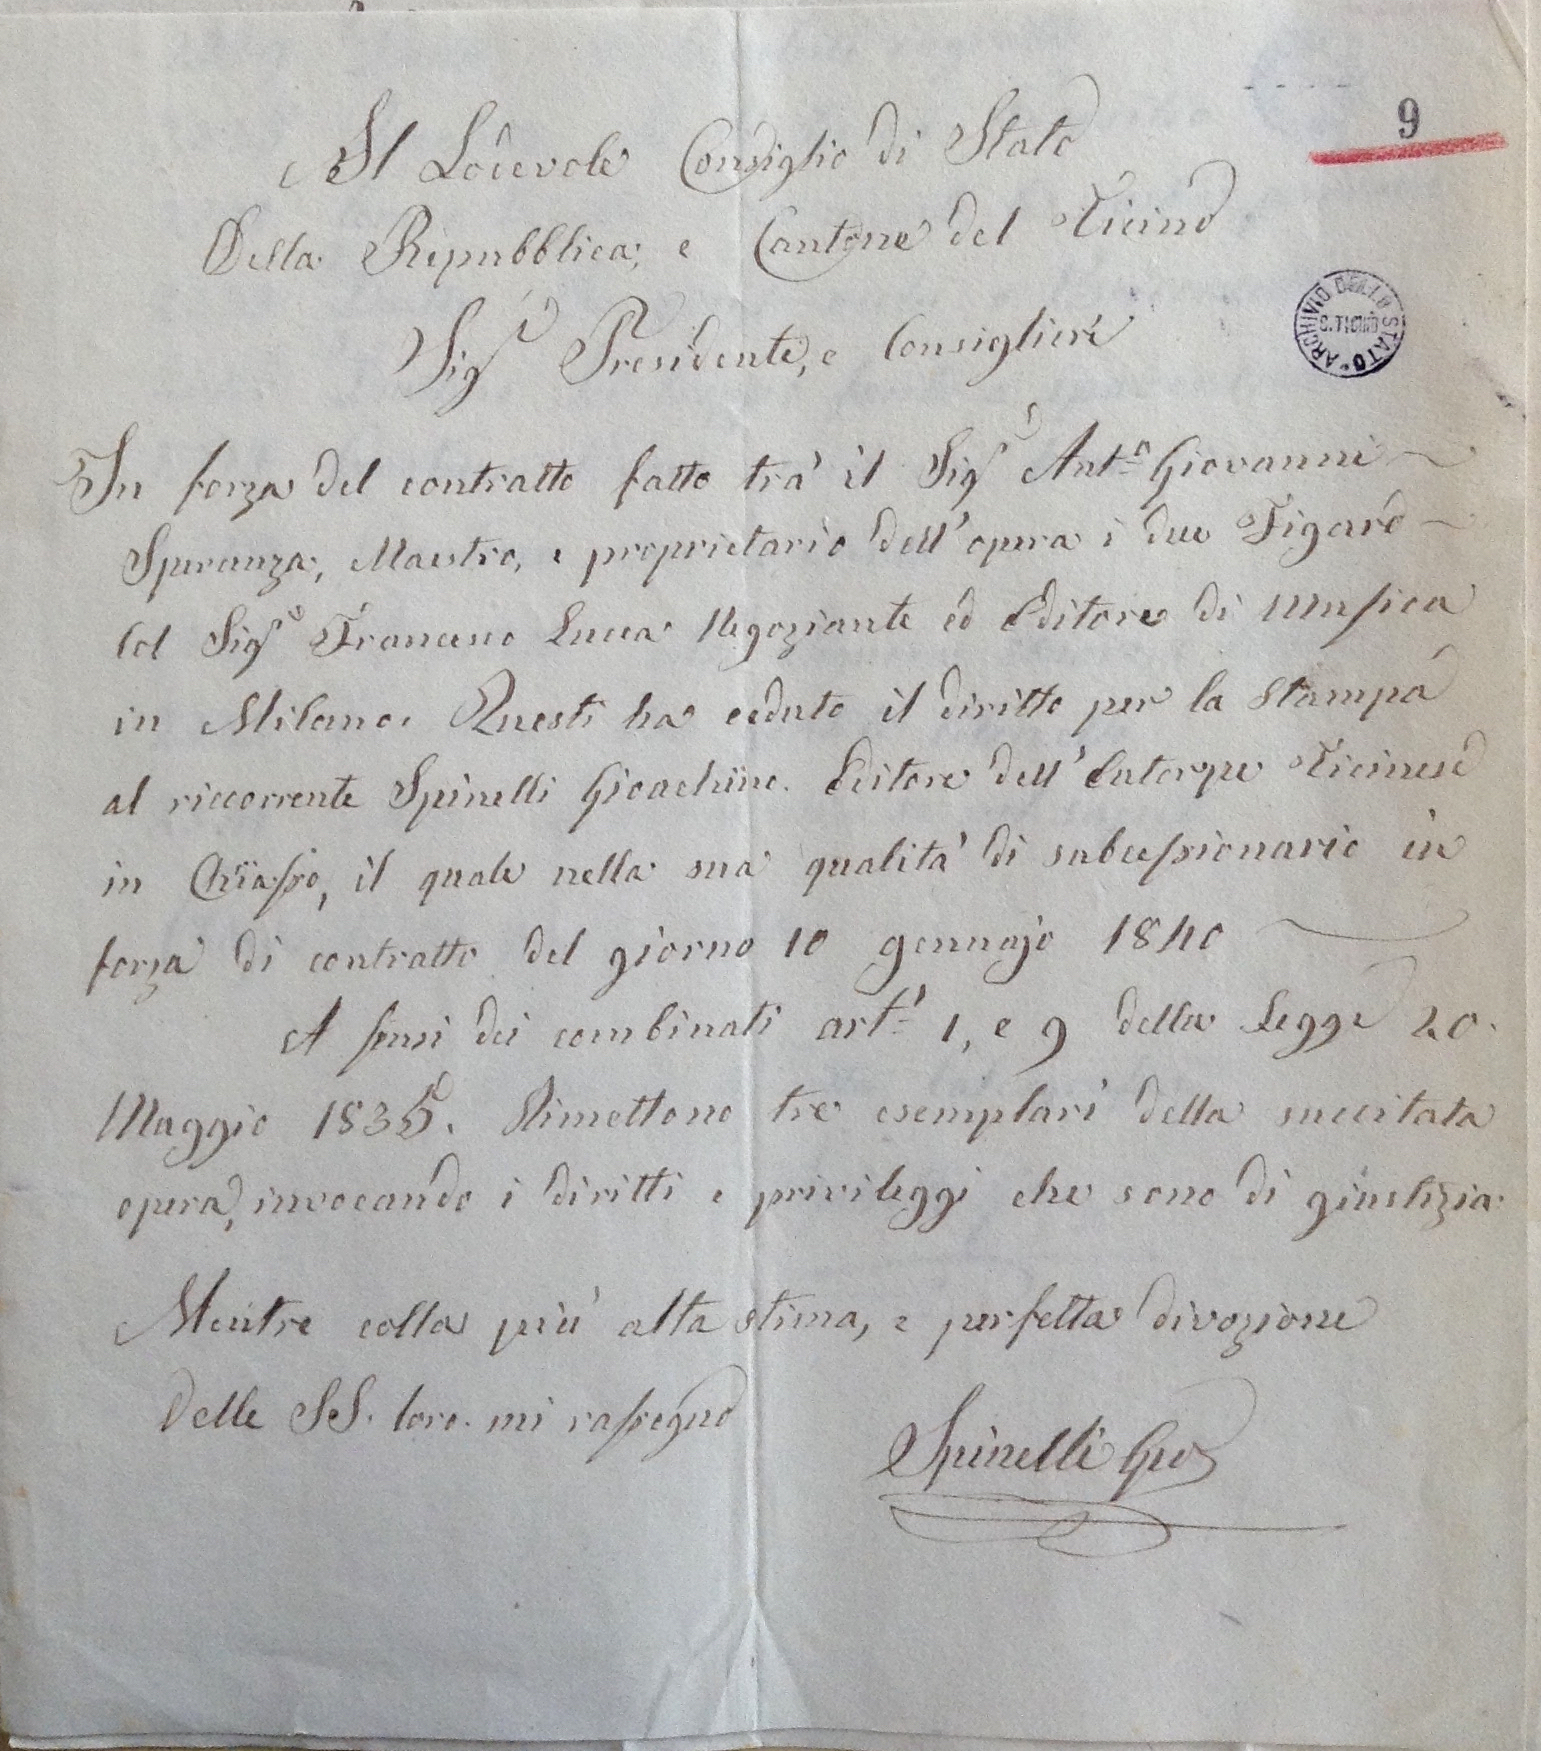 9
Al Lodevole Consiglio di Stato
Della Repubblica, e Cantone del Ticino
Sigri Presidente, e Consiglieri
ARCHIVIO DELLO STATO
C. TICINO
In forza del contratto fatto trà il Sigr Anto Giovanni
Speranza, Maestro, e proprietario dell'opera i due Figaro
Col Sigr Francesco Lucca Negoziante ed Editore di Musica
in Milano. Questi ha ceduto il diritto per la stampa
al riccorrente Spinelli Gioachino. Editore dell'Euterpe Ticinese
in Chiasso, il quale nella sua qualità di subcessionario in
forza di contratto del giorno 10 gennajo 1840
A sensi dei combinati arti 1, e 9 della Legge 20.
Maggio 1835. Rimettono tre esemplari della succitata
opera, invocando i diritti e privileggi che sono di giustizia.
Mentre colla più alta stima, e perfetta divozione
Delle SS. loro. mi rassegno
Spinelli Gio